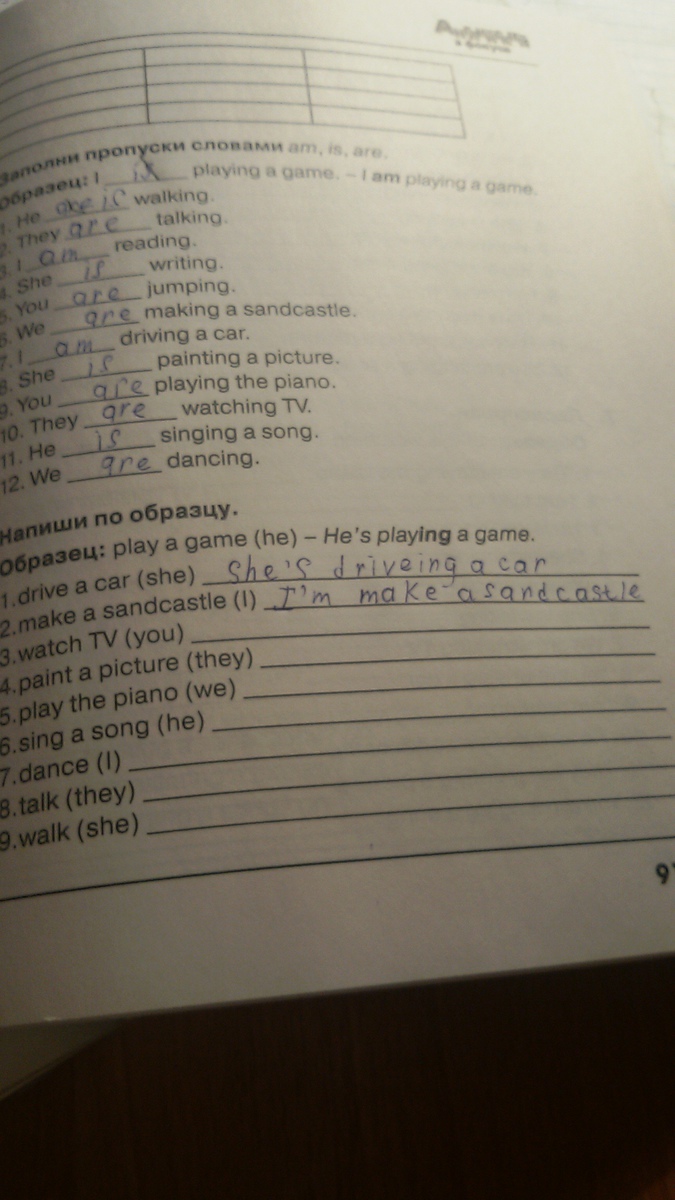 Заполни пропуски словами am, is, are.
Образец: I is playing a game. – I am playing a game.
1. He is walking.
2. They are talking.
3. I am reading.
4. She is writing.
5. You are jumping.
6. We are making a sandcastle.
7. I am driving a car.
8. She is painting a picture.
9. You are playing the piano.
10. They are watching TV.
11. He is singing a song.
12. We are dancing.
Напиши по образцу.
Образец: play a game (he) – He's playing a game.
1.drive a car (she) She's driveing a car
2.make a sandcastle (I) I'm make a sandcastle
3.watch TV (you)
4.paint a picture (they)
5.play the piano (we)
6.sing a song (he)
7.dance (I)
8.talk (they)
9.walk (she)